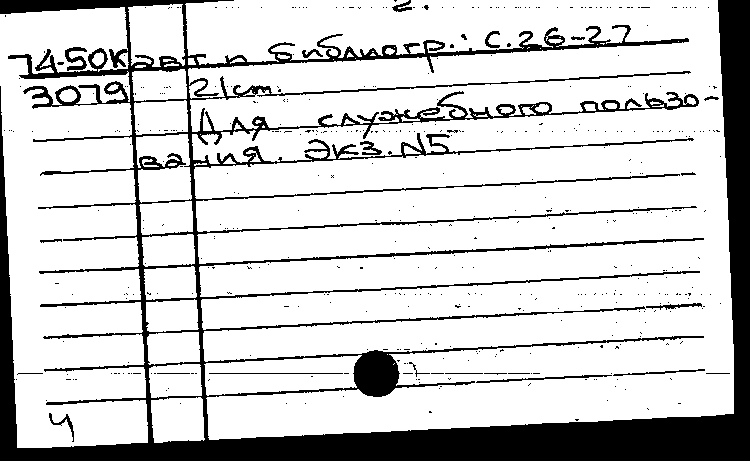 2.
74-50к авт п библиогр.: с.26-27
3079 21 cm.
Для служебного пользо-
вания. Экз. N5
4